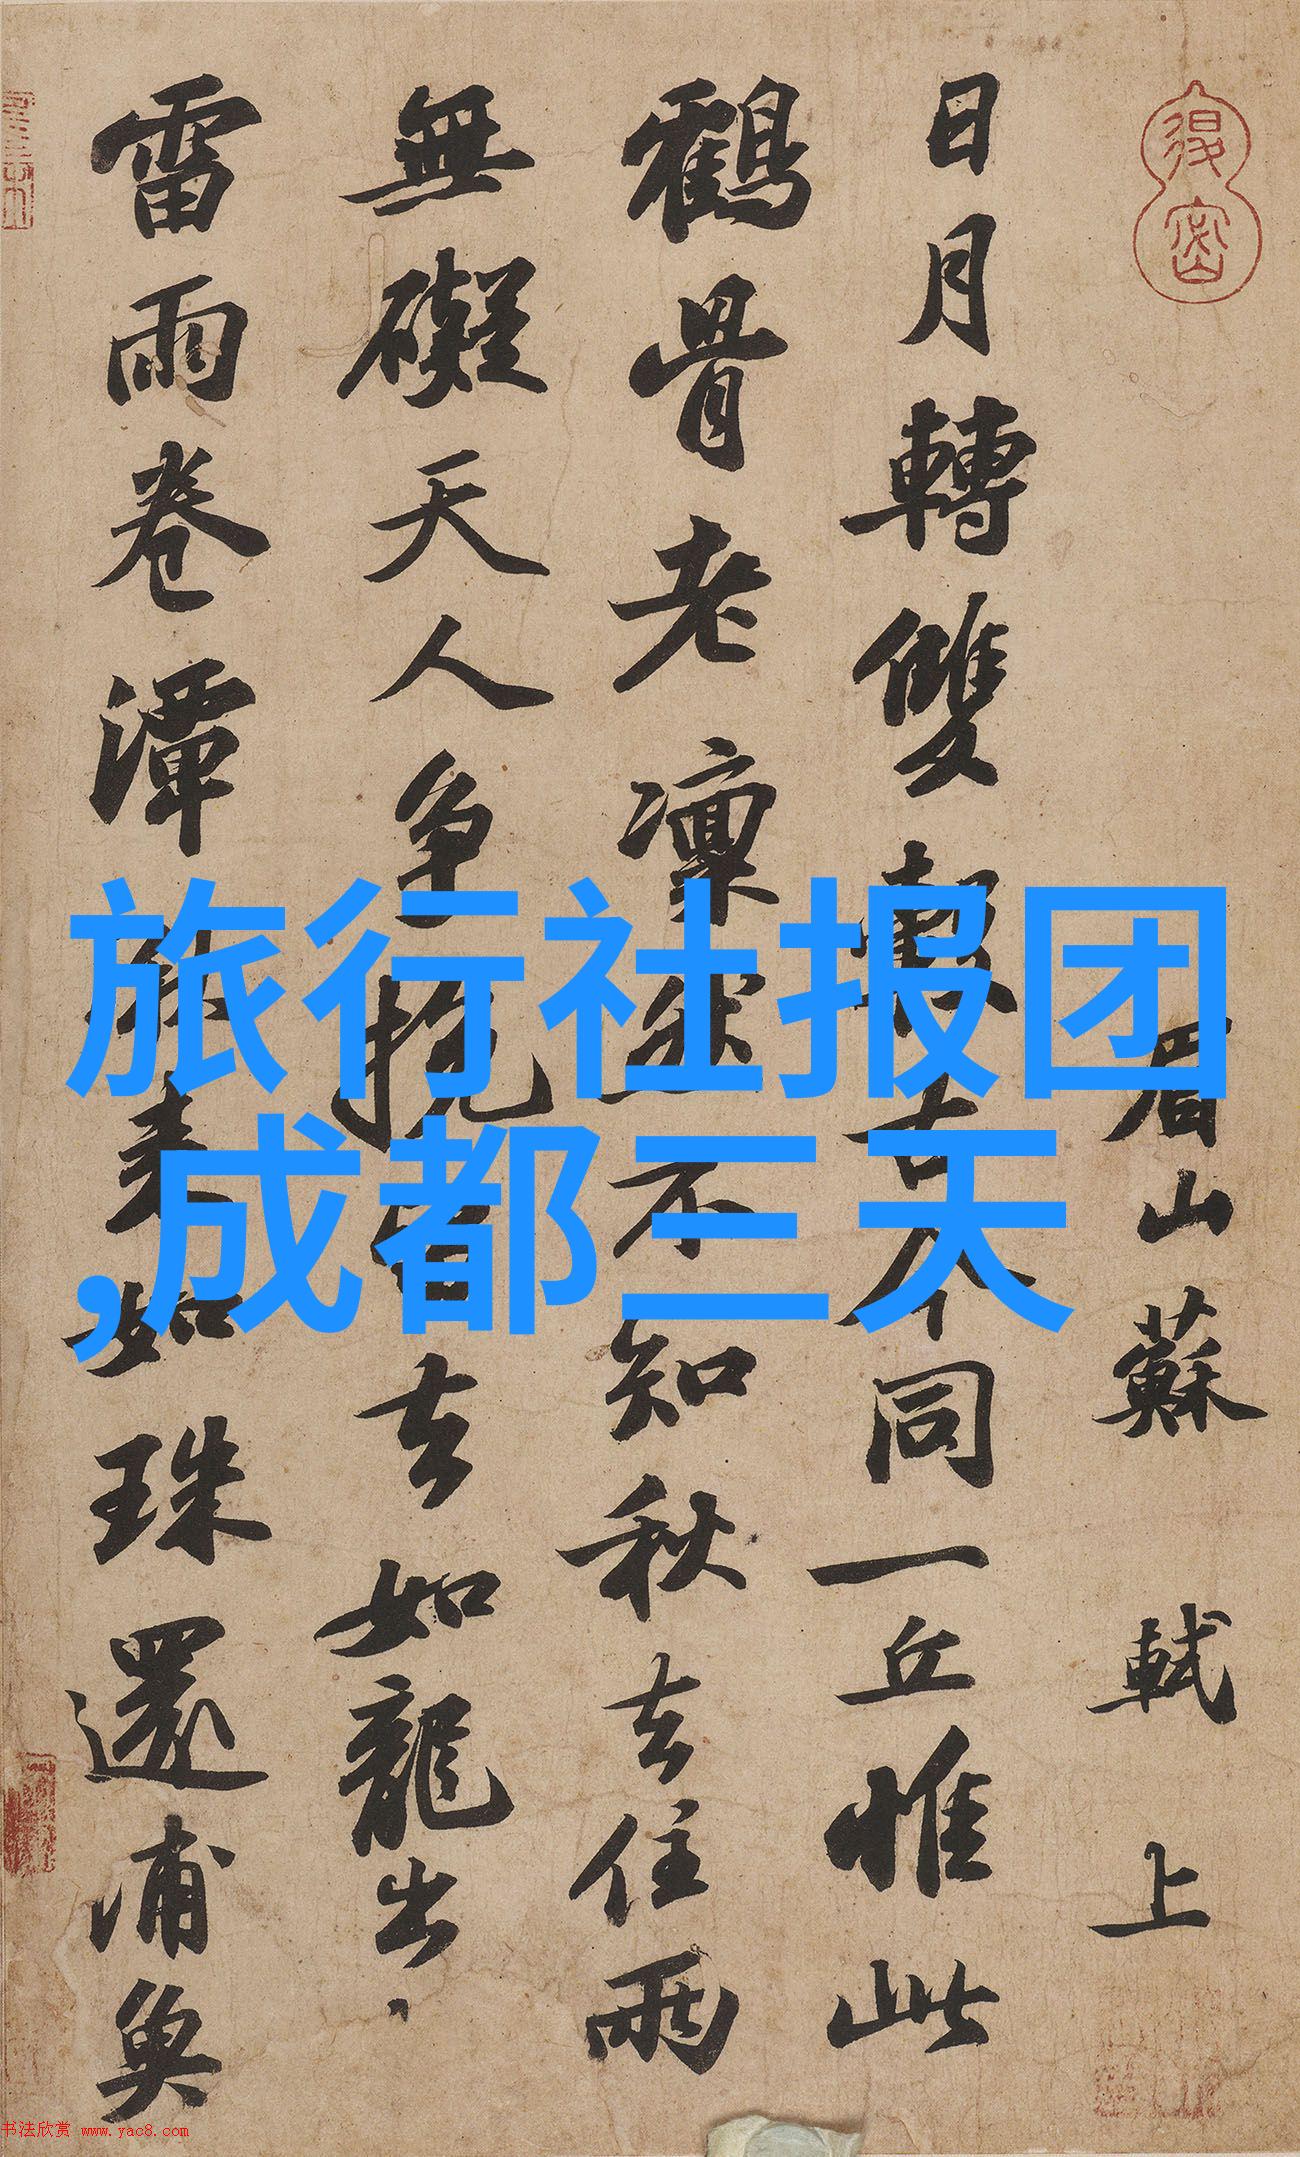 眉山蘇 軾 上
日月轉雙轂古今同一丘惟此
鶴骨老凛然不知秋去住兩
無礙天人争挽留去如龍出
雷雨卷潭湫来如珠還浦魚
旅行社报团
,成都三天
书法欣赏 www.yac8.com